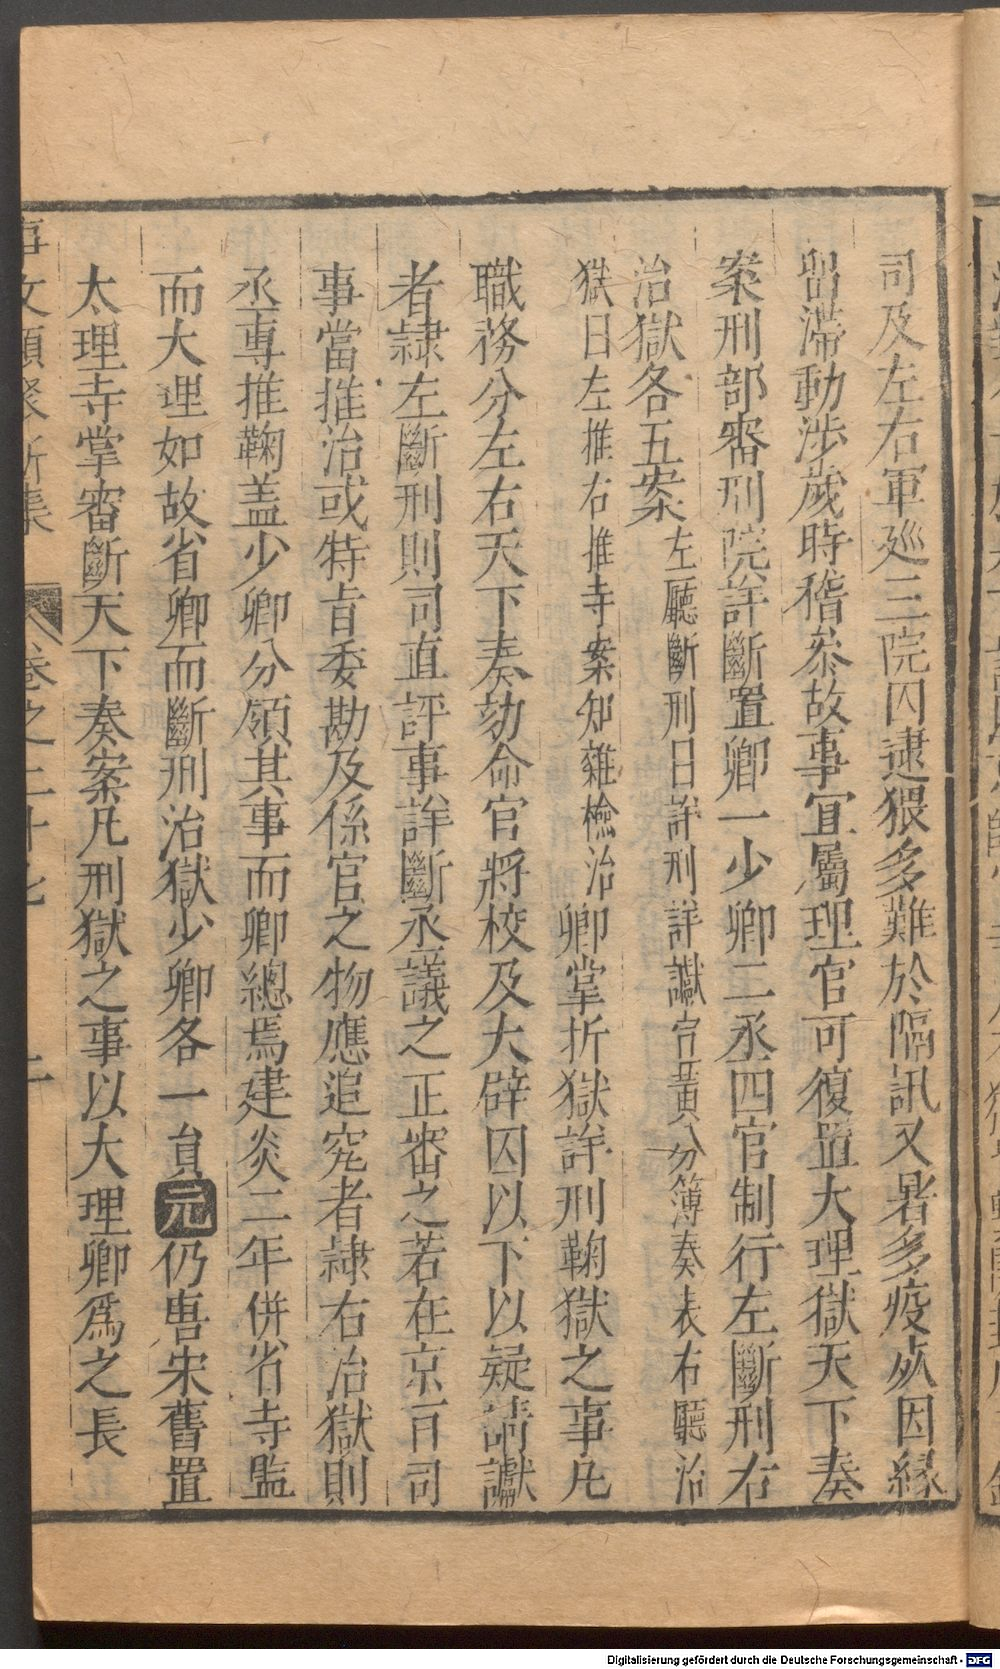 司及左右軍廵三院囚逮猥多難於隔訊又暑多疫疾因緣
留滯動涉歲時稽叅故事宜屬理官可復置大理獄天下奏
案刑部審刑院詳斷置卿一少卿二丞四官制行左斷刑右
治獄各五案左廳斷刑日詳刑詳讞官黃分簿奏表右聽治
獄日左推右推寺案知雜檢治卿掌折獄詳刑鞠獄之事凡
職務分左右天下奏劾命官將校及大辟囚以下以疑請讞
者隷左斷刑則司直評事詳斷丞議之正審之若在京百司
事當推治或特旨委勘及係官之物應追究者隷右治獄則
丞專推鞠盖少卿分領其事而卿總焉建炎二年併省寺監
而大理如故省卿而斷刑治獄少卿各一員元仍唐宋舊置
太理寺掌審斷天下奏案凡刑獄之事以大理卿爲之長
事文類聚新集 卷之二十七
Digitalisierung gefördert durch die Deutsche Forschungsgemeinschaft - DFG